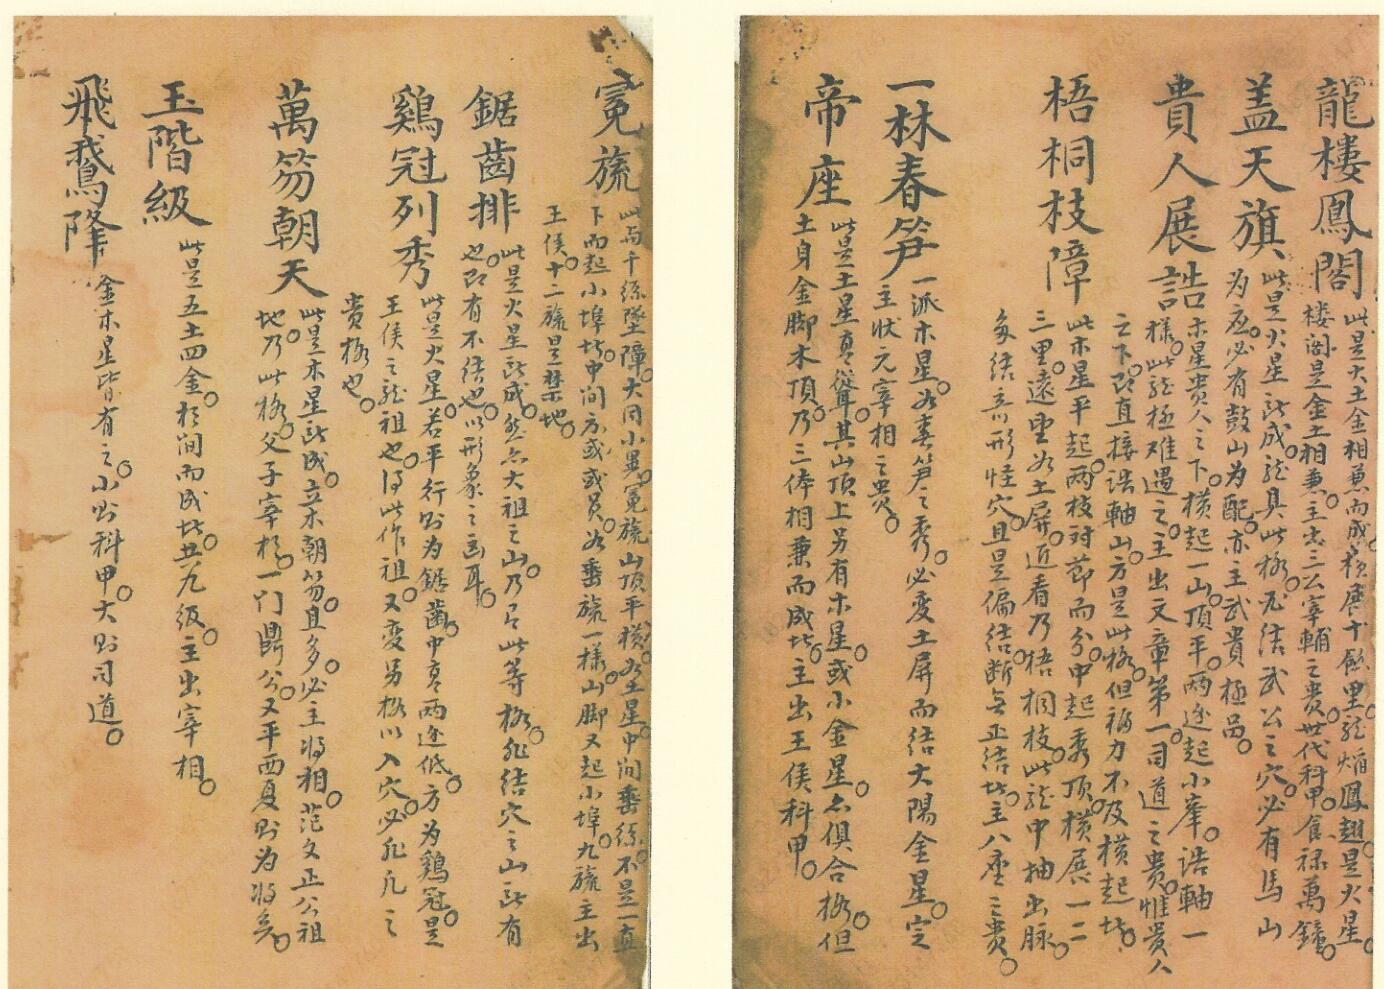 龍樓鳳閣 此是火土金相兼而成橫廣十餘里龍焰鳳翅是火星
樓閣是金土相兼主出三公宰輔之貴世代科甲食祿萬鍾
盖天旗 此是火星所成龍具此格尤結武公之穴必有馬山
為应必有鼓山為配亦主武貴極品
貴人展誥 木星貴人之下橫起一山頂平两边起小峯誥軸一
樣此龍極难遇之主出文章第一司道之貴惟贵人
之下即直接誥軸山方是此格但福力不及橫起者
梧桐枝障 此木星平起两枝对節而分中起秀頂橫展一二
三里遠望如土屏近看乃梧桐枝此龍中抽出脉
多結奇形怪穴且是偏結断無正結者主八座之贵
一林春笋 一派木星如春笋之秀必变土屏而结大陽金星定
主状元宰相之贵
帝座 此是土星真聳其山顶上另有木星或小金星亦俱合格但
土身金脚木頂乃三侔相兼而成者主出王侯科甲
冕旒 此与千絲墜障大同小異冕旒山顶平橫如土星中间垂絲不是一直
下而起小埠者中间方或或员如垂旒一樣山脚又起小埠九旒主出
王侯十二旒是禁地
鋸齒排 此是火星所成然亦大祖之山乃有此等格非结穴之山所有
也即有不结也以形象之言耳
鷄冠列秀 此是火星若平行则为鋸齒中高两边低方为鷄冠是
王侯之龍祖也得此作祖又变另格以入穴必非凡之
贵格也
萬笏朝天 此是木星所成立木朝笏且多必主将相范文正公祖
地乃此格父子宰相一门鼎公又平西夏则为将矣
玉階級 此是五土四金相间而成者丑九级主出宰相
飛鵞降 金木星皆有之小则科甲大则司道